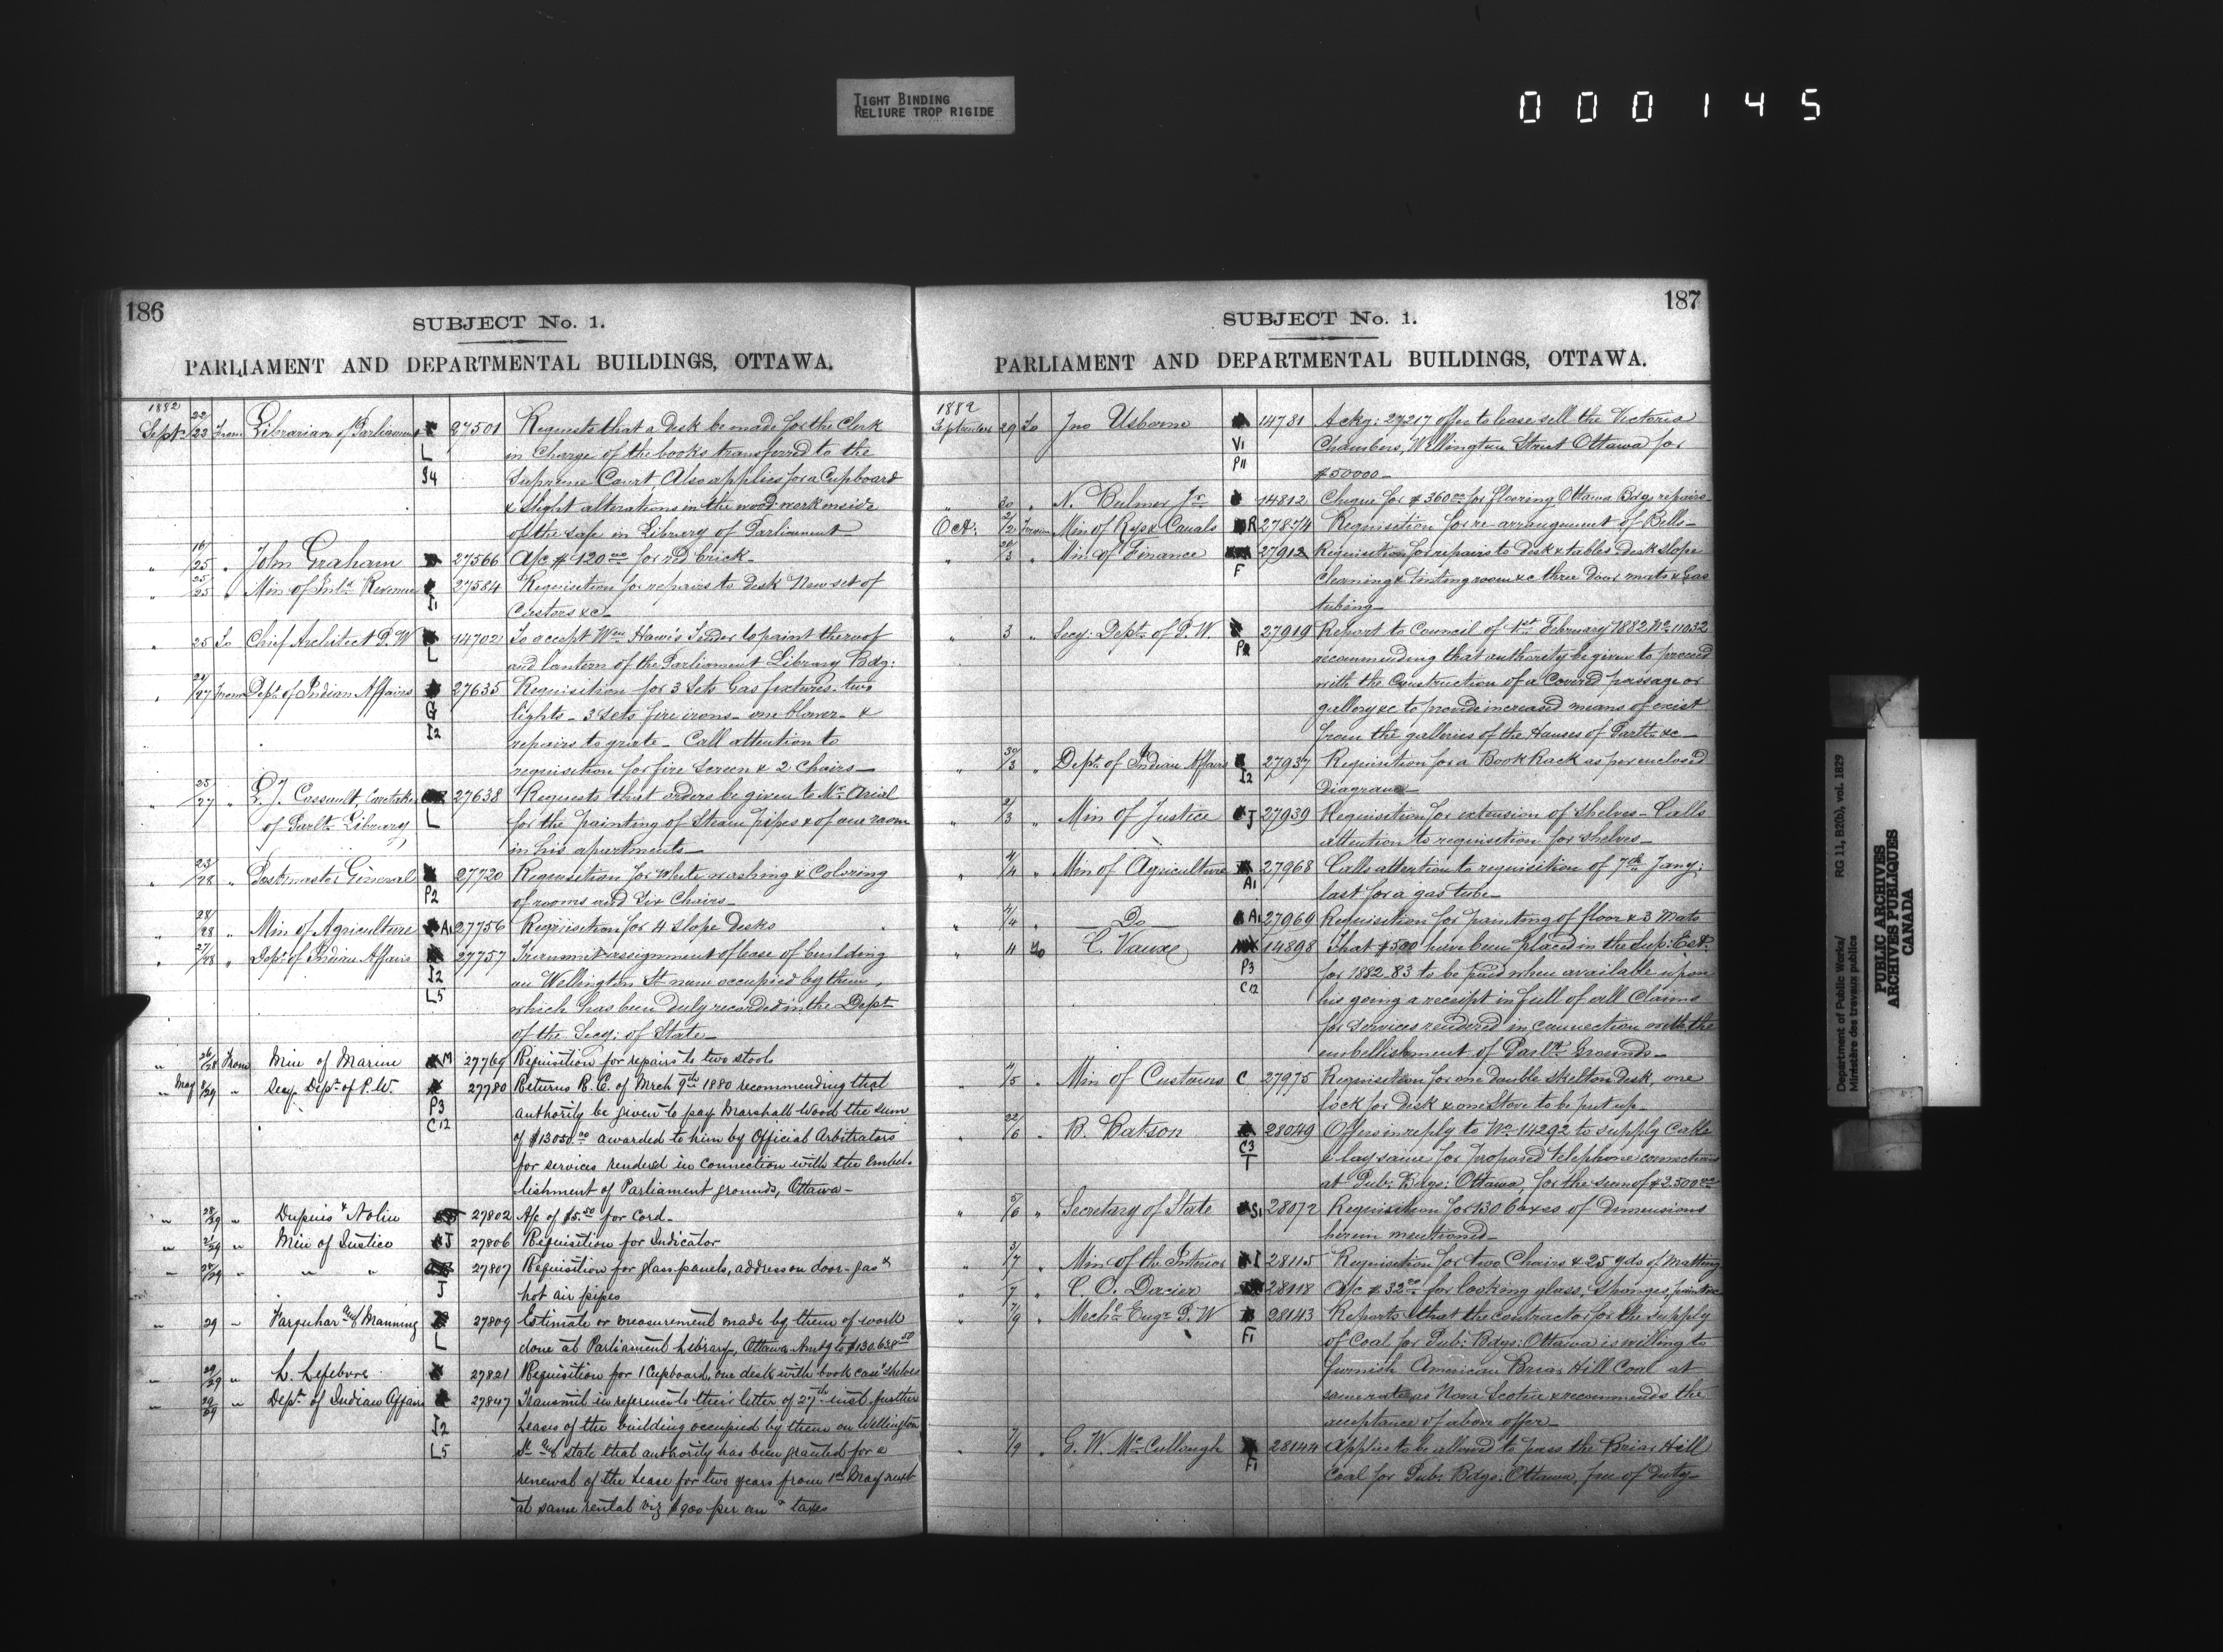 TIGHT BINDING
RELIURE TROP RIGIDE
000145
186
SUBJECT No. 1.
PARLIAMENT AND DEPARTMENTAL BUILDINGS, OTTAWA.
1882
Sept. 22/23 From Librarian of Parliament 27501 Requests that a desk be made for the Clerk
L in Charge of the books transferred to the
S4 Supreme Court, Also applies for a Cupboard
& slight alterations in the wood work inside
of the safe in Library of Parliament
" 16/25 " John Graham 27566 A/c $120.00 for red brick
" 25/25 " Min of Inld Revenue 27584 Requisition for repairs to desk New set of
I1 Castors &c
" 25 To Chief Architect P.W 14702 To accept Wm Howe's Tender to paint the roof
L and lantern of the Parliament Library Bdg:
" 27 From Dept. of Indian Affairs 27635 Requisition for 3 Sets Gas fixtures. two
G lights - 3 sets fire irons - one blower - &
I2 repairs to grate - Call attention to
requisition for fire screen & 2 Chairs -
" 25/27 " Cassault, Caretaker 27638 Requests that orders be given to Mr. Arial
of Parlt. Library, L for the painting of Steam pipes & of one room
in his apartments -
" 23/28 " Postmaster General 27720 Requisition for White washing & Coloring
P2 of rooms and Six Chairs -
" 28/28 " Min of Agriculture A1 27756 Requisition for 4 slope desks
" 27/28 " Dept. of Indian Affairs 27757 Transmit assignment of lease of building
I2 on Wellington St. now occupied by them,
L5 which has been duly recorded in the Dept
of the Secy: of State -
" 26/28 From Min of Marine M 27769 Requisition for repairs to two stools
" May 8/29 " Secy. Dept. of P.W. 27780 Returns R.C. of Mrch 9th 1880 recommending that
P3 authority be given to pay Marshall Wood the sum
C12 of $13050.00 awarded to him by Official Arbitrators
for services rendered in connection with the embel-
lishment of Parliament grounds, Ottawa -
" 28/29 " Dupuis & Nolin 27802 A/c of $5.50 for Cord -
" 21/29 " Min of Justice J 27806 Requisition for Indicator
" 29 " " " 27807 Requisition for glass panels, address on door - gas &
J hot air pipes
" 29 " Farquhar and Manning 27809 Estimate or measurement made by them of work
L done at Parliament Library, Ottawa Amtg to $130.638.50
" 29/29 " L. Lefebvre 27821 Requisition for 1 Cupboard, one desk with book case & shelves
" 29/29 " Dept. of Indian Affairs 27847 Transmit in reference to their letter of 27th inst. further
I2 Leases of the building occupied by them on Wellington
L5 St. and state that authority has been granted for a
renewal of the Lease for two years from 1st May next
at same rental viz $900 per an & taxes
187
SUBJECT No. 1.
PARLIAMENT AND DEPARTMENTAL BUILDINGS, OTTAWA.
1882
September 29 To Jno Usborne 14781 Ackg: 27217 offer to lease sell the Victoria
V1 Chambers, Wellington Street Ottawa for
P11 $50000 -
" 30 " N. Bulmer Jr. 14812 Cheque for $360.00 for flooring Ottawa Bdg repairs -
Oct: 2/2 From Min of Rys & Canals R 27874 Requisition for re-arrangement of Bells -
" 3 " Min of Finance 27912 Requisition for repairs to desk & tables desk slope
F cleaning & tinting room &c three door mats & Gas
tubing -
" 3 " Secy: Dept. of P.W. 27919 Report to Council of 1st February 1882 No. 11032
P2 recommending that authority be given to proceed
with the Construction of a Covered passage or
gallery &c to provide increased means of exist
from the galleries of the Houses of Parlt. &c -
" 30/3 " Dept. of Indian Affairs 27937 Requisition for a Book Rack as per enclosed
I2 Diagram -
" 2/3 " Min of Justice J 27939 Requisition for extension of Shelves - Calls
attention to requisition for shelves -
" 4/4 " Min of Agriculture 27968 Calls attention to requisition of 7th Jany:
A1 last for a gas tube -
" 4/4 " Do A1 27969 Requisition for painting of floor & 3 Mats
" 4 To C. Vaux 14898 That $500 have been placed in the Sup: Est.
P3 for 1882.83 to be paid when available upon
C12 his going a receipt in full of all Claims
for services rendered in connection with the
embellishment of Parlt. Grounds -
" 4/5 " Min of Customs C 27975 Requisition for one double skelton desk, one
lock for desk & one Stove to be put up -
" 22/6 " B. Batson 28049 Offers in reply to No. 14292 to supply Cable
C3 & lay same for proposed telephone connections
T at Pub: Bdgs: Ottawa, for the sum of $2.500.00
" 5/6 " Secretary of State S1 28072 Requisition for 130 boxes of dimensions
herein mentioned -
" 3/7 " Min of the Interior I 28115 Requisition for two Chairs & 25 yds of Matting
" 7 " C. O. Dacier 28118 A/c $32.00 for looking glass, Sponges, paint &c
" 7/9 " Mechl. Engr. P.W 28143 Reports that the contractor for the supply
F1 of Coal for Pub: Bdgs: Ottawa is willing to
furnish American Briar Hill Coal at
same rate as Nova Scotia & recommends the
acceptance of above offer -
" 7/9 " G. W. McCullough 28144 Applies to be allowed to pass the Briar Hill
F1 Coal for Pub: Bdgs: Ottawa, free of duty -
Department of Public Works/ RG 11, B2(b), vol. 1829
Ministère des travaux publics
PUBLIC ARCHIVES
ARCHIVES PUBLIQUES
CANADA